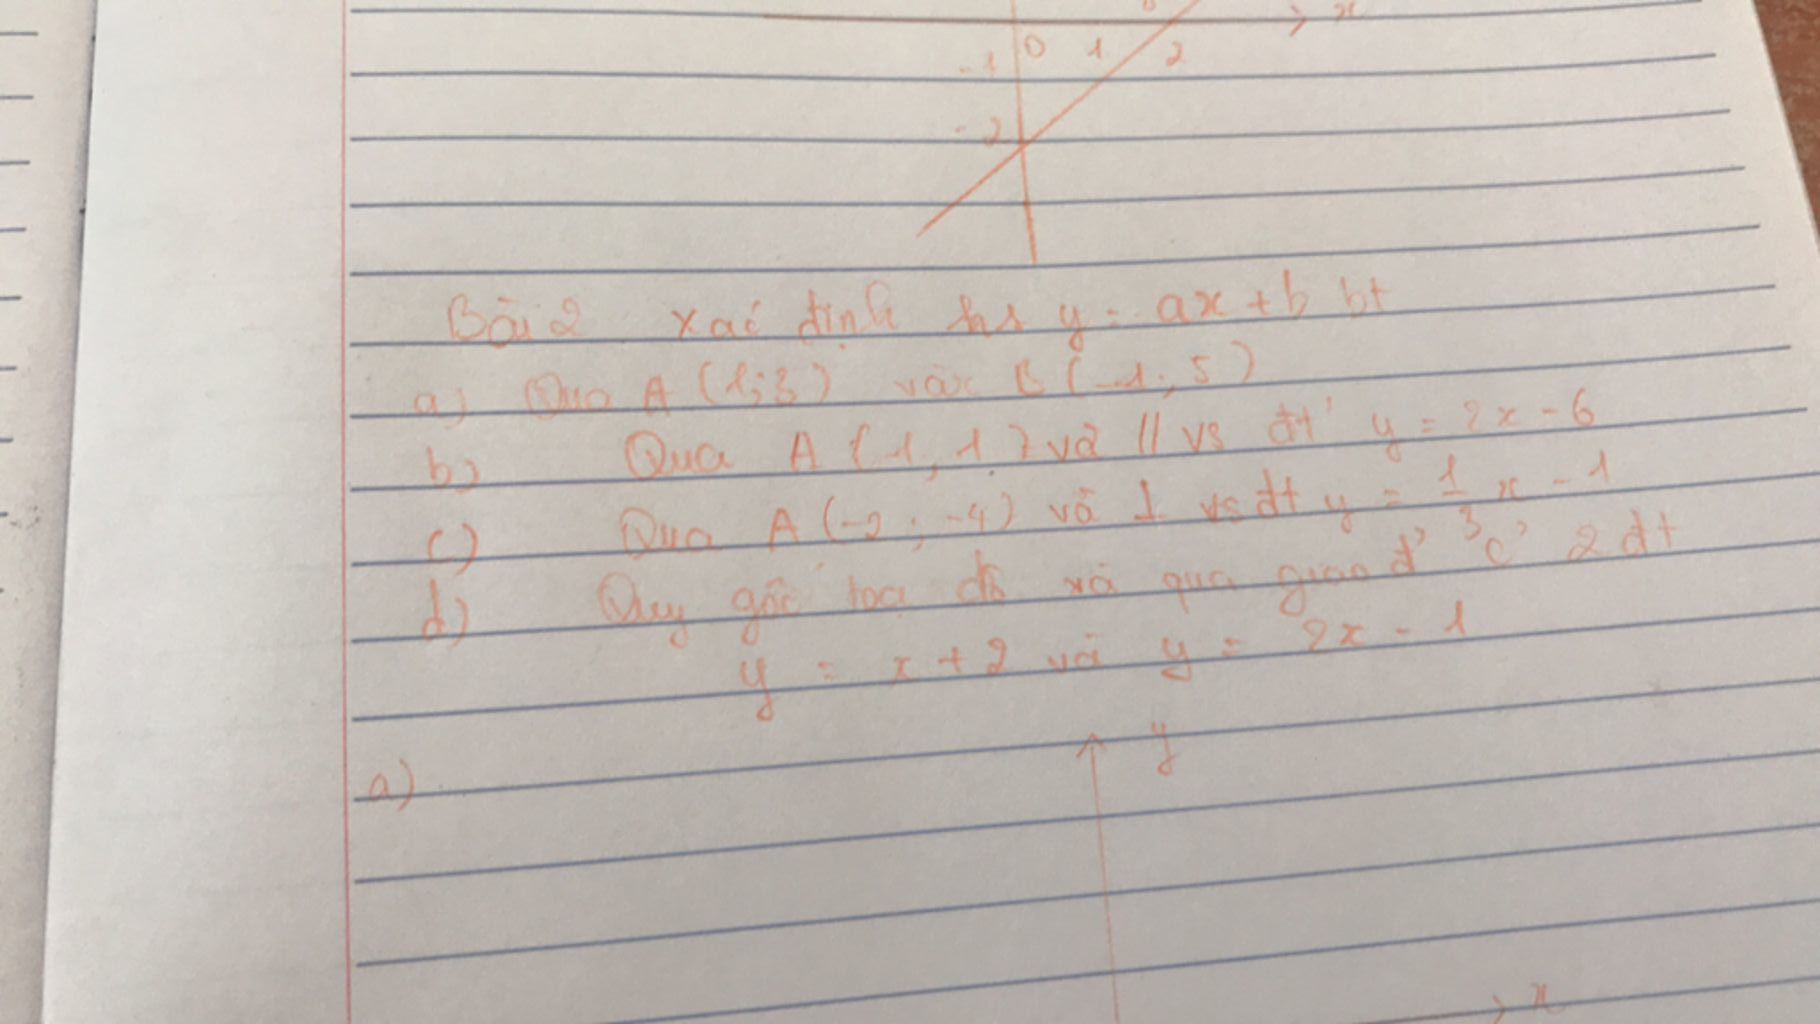 x
0 1 2
-1
-2
Bài 2 Xác định hs y = ax + b bt
a) Qua A (1; 3) và B (-1; 5)
b) Qua A (1, 1) và // vs đt' y = 2x - 6
c) Qua A (-2; -4) và ⊥ vs đt y = 1/3 x - 1
d) Quy gốc toạ độ và qua giao đ' c' 2 đt
y = x + 2 và y = 2x - 1
a)
y
x